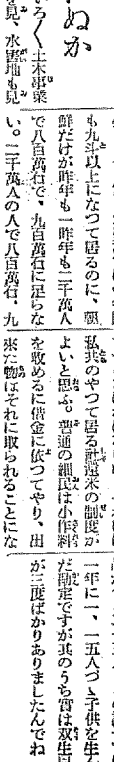 ぬか
いろ〱土木事業
を見、水害地も見
も九斗以上になつて居るのに、朝
鮮だけが昨年も一昨年も二千萬人
で八百萬石で、九百萬石に足らな
い。二千萬人の人で八百萬石、九
私共のやつて居る社還米の制度が
よいと思ふ。普通の細民は小作料
を收めるに借金に依つてやり、出
來た物はそれに取られることにな
一年に一、一五人づゝ子供を生ん
だ勘定ですが其のうち實は双生以
が三度ばかりありましたんでね